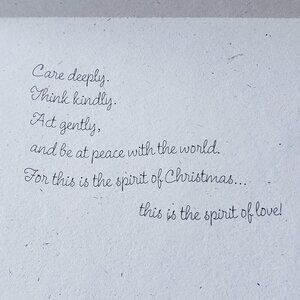 Care deeply.
Think kindly.
Act gently,
and be at peace with the world.
For this is the spirit of Christmas...
this is the spirit of love!